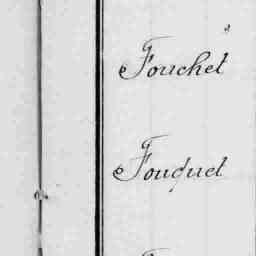 Fouchet
Fouquet